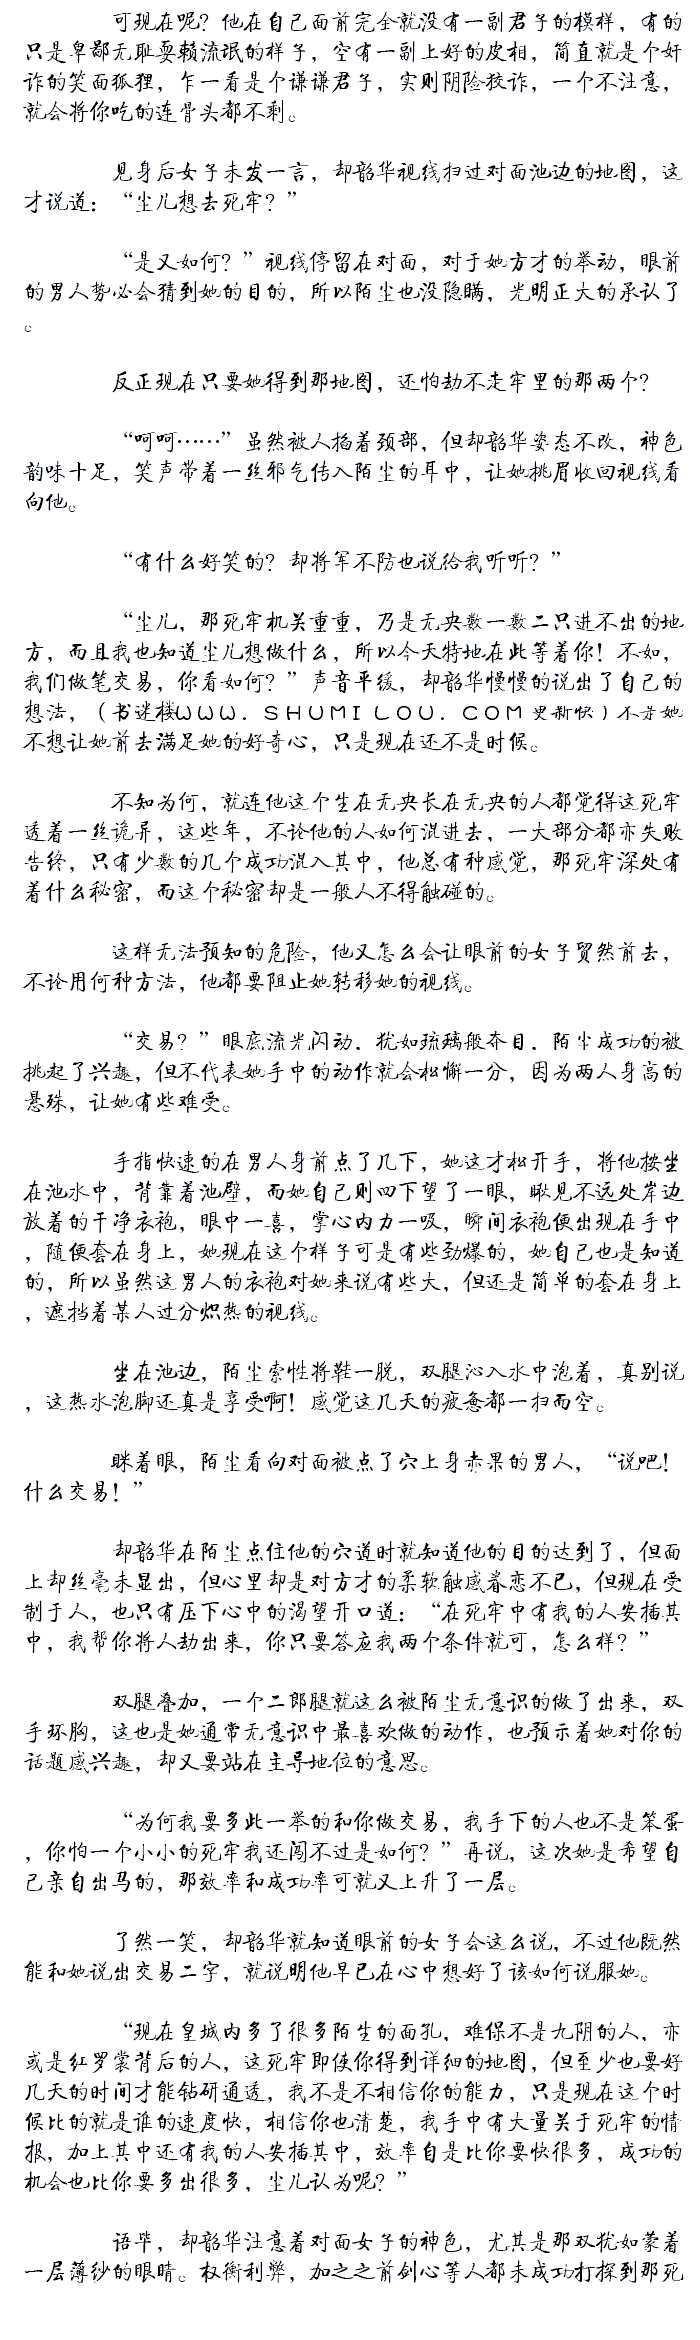 可现在呢？他在自己面前完全就没有一副君子的模样，有的
只是卑鄙无耻耍赖流氓的样子，空有一副上好的皮相，简直就是个奸
诈的笑面狐狸，乍一看是个谦谦君子，实则阴险狡诈，一个不注意，
就会将你吃的连骨头都不剩。
见身后女子未发一言，却韶华视线扫过对面池边的地图，这
才说道：“尘儿想去死牢？”
“是又如何？”视线停留在对面，对于她方才的举动，眼前
的男人势必会猜到她的目的，所以陌尘也没隐瞒，光明正大的承认了
。
反正现在只要她得到那地图，还怕劫不走牢里的那两个？
“呵呵……”虽然被人掐着颈部，但却韶华姿态不改，神色
韵味十足，笑声带着一丝邪气传入陌尘的耳中，让她挑眉收回视线看
向他。
“有什么好笑的？却将军不防也说给我听听？”
“尘儿，那死牢机关重重，乃是无央数一数二只进不出的地
方，而且我也知道尘儿想做什么，所以今天特地在此等着你！不如，
我们做笔交易，你看如何？”声音平缓，却韶华慢慢的说出了自己的
想法，（书迷楼ＷＷＷ．ＳＨＵＭＩＬＯＵ．ＣＯＭ更新快）不是她
不想让她前去满足她的好奇心，只是现在还不是时候。
不知为何，就连他这个生在无央长在无央的人都觉得这死牢
透着一丝诡异，这些年，不论他的人如何混进去，一大部分都亦失败
告终，只有少数的几个成功混入其中，他总有种感觉，那死牢深处有
着什么秘密，而这个秘密却是一般人不得触碰的。
这样无法预知的危险，他又怎么会让眼前的女子贸然前去，
不论用何种方法，他都要阻止她转移她的视线。
“交易？”眼底流光闪动，犹如琉璃般夺目，陌尘成功的被
挑起了兴趣，但不代表她手中的动作就会松懈一分，因为两人身高的
悬殊，让她有些难受。
手指快速的在男人身前点了几下，她这才松开手，将他按坐
在池水中，背靠着池壁，而她自己则四下望了一眼，瞅见不远处岸边
放着的干净衣袍，眼中一喜，掌心内力一吸，瞬间衣袍便出现在手中
，随便套在身上，她现在这个样子可是有些劲爆的，她自己也是知道
的，所以虽然这男人的衣袍对她来说有些大，但还是简单的套在身上
，遮挡着某人过分炽热的视线。
坐在池边，陌尘索性将鞋一脱，双腿沁入水中泡着，真别说
，这热水泡脚还真是享受啊！感觉这几天的疲惫都一扫而空。
眯着眼，陌尘看向对面被点了穴上身赤果的男人，“说吧！
什么交易！”
却韶华在陌尘点住他的穴道时就知道他的目的达到了，但面
上却丝毫未显出，但心里却是对方才的柔软触感眷恋不已，但现在受
制于人，也只有压下心中的渴望开口道：“在死牢中有我的人安插其
中，我帮你将人劫出来，你只要答应我两个条件就可，怎么样？”
双腿叠加，一个二郎腿就这么被陌尘无意识的做了出来，双
手环胸，这也是她通常无意识中最喜欢做的动作，也预示着她对你的
话题感兴趣，却又要站在主导地位的意思。
“为何我要多此一举的和你做交易，我手下的人也不是笨蛋
，你怕一个小小的死牢我还闯不过是如何？”再说，这次她是希望自
己亲自出马的，那效率和成功率可就又上升了一层。
了然一笑，却韶华就知道眼前的女子会这么说，不过他既然
能和她说出交易二字，就说明他早已在心中想好了该如何说服她。
“现在皇城内多了很多陌生的面孔，难保不是九阴的人，亦
或是红罗裳背后的人，这死牢即使你得到详细的地图，但至少也要好
几天的时间才能钻研通透，我不是不相信你的能力，只是现在这个时
候比的就是谁的速度快，相信你也清楚，我手中有大量关于死牢的情
报，加上其中还有我的人安插其中，效率自是比你要快很多，成功的
机会也比你要多出很多，尘儿认为呢？”
语毕，却韶华注意着对面女子的神色，尤其是那双犹如蒙着
一层薄纱的眼睛。权衡利弊，加之之前剑心等人都未成功打探到那死